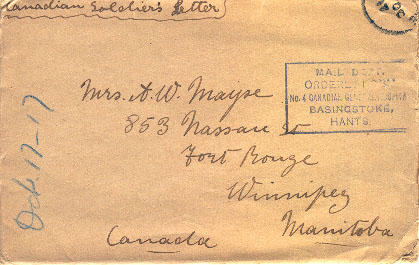 Canadian Soldiers Letter
MAIL DEPT.
ORDERLY
No. 4 CANADIAN GENERAL
BASINGSTOKE,
HANTS.
Mrs. A. W. Mayse
853 Nassau St
Fort Rouge
Winnipeg
Manitoba
Canada
Oct 17-17